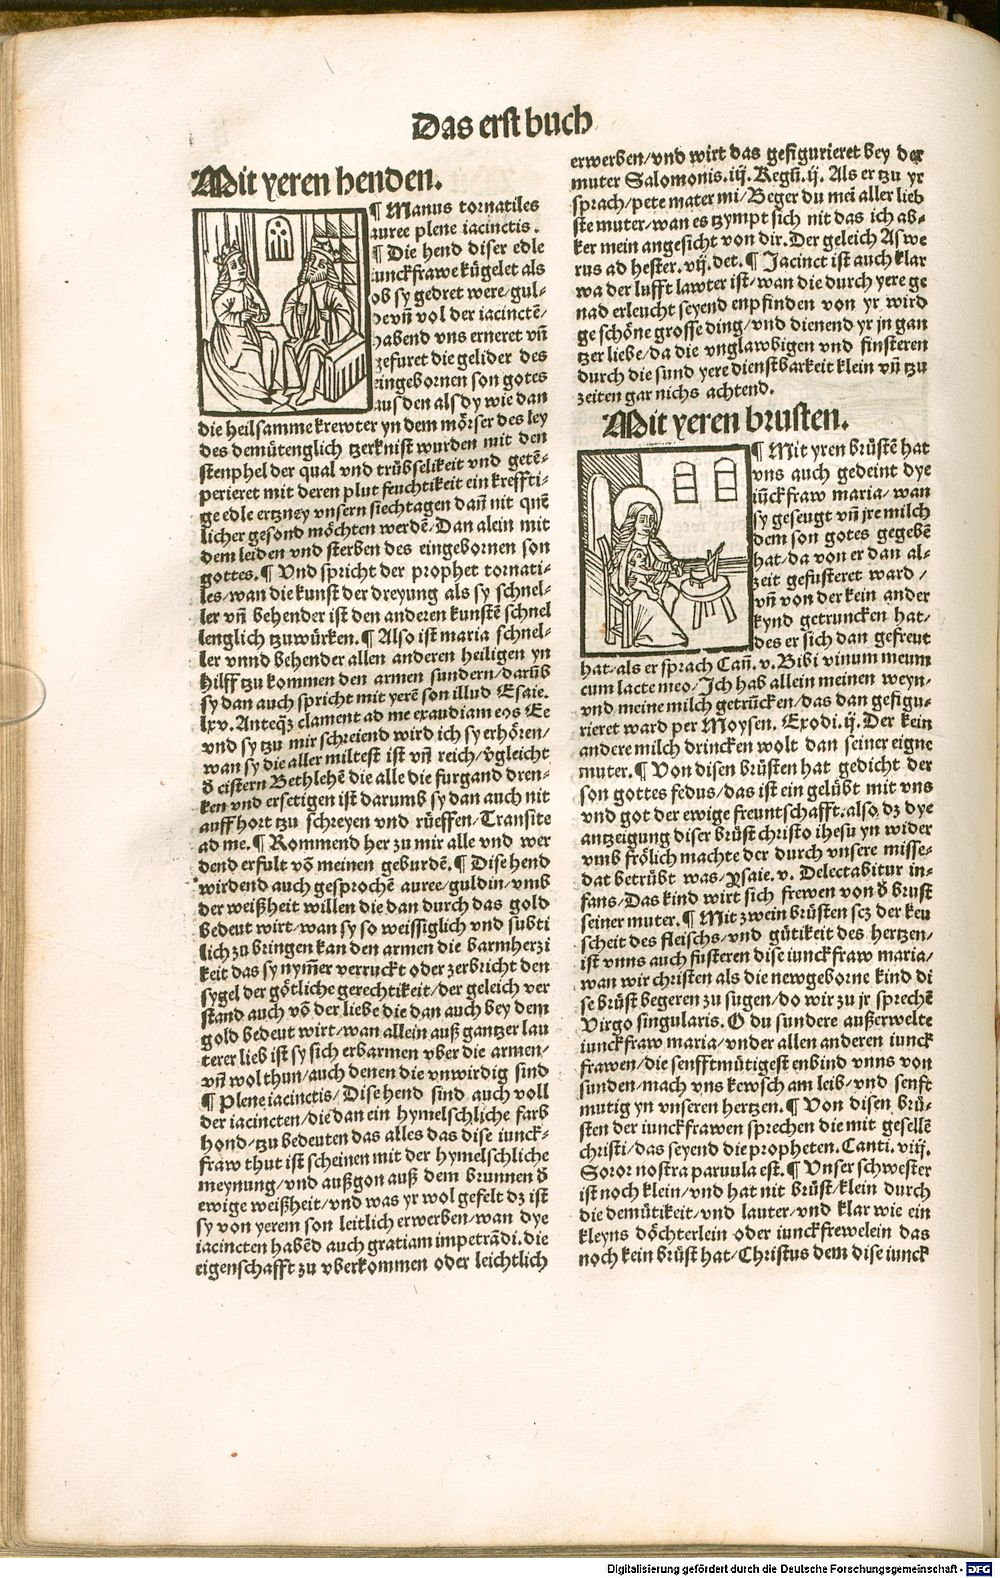 Das erst buch
Mit yeren henden.
¶ Manus tornatiles
auree plene iacinctis.
¶ Die hend diser edle
iunckfrawe kügelet als
ob sy gedret were/gul⸗
devñ vol der iacinctē/
habend vns erneret vñ
gefuret die gelider des
eingebornen son gotes
aus den als dy wie dan
die heilsamme krewter yn dem mörser des ley
des demütenglich tzerknist wurden mit den
stenphel der qual vnd trübselikeit vnd getē⸗
perieret mit deren plut feuchtikeit ein kreffti⸗
ge edle ertzney vnsern siechtagen dañ nit quē
licher gesond möchten werdē/Dan alein mit
dem leiden vnd sterben des eingebornen son
gottes.¶ Vnd spricht der prophet tornati⸗
les/wan die kunst der dreyung als sy schnel⸗
ler vñ behender ist den anderen kunstē schnel
lenglich tzuwürken.¶ Also ist maria schnel⸗
ler vnnd behender allen anderen heiligen yn
hilff tzu kommen den armen sundern/darūb
sy dan auch spricht mit yerē son illud Esaie.
lxv. Anteq̃ꝫ clament ad me exaudiam eos Ee
vnd sy tzu mir schreiend wird ich sy erhören/
wan sy die aller miltest ist vñ reich/v̈gleicht
ð cistern Bethlehē die alle die furgand dren⸗
ken vnd ersetigen ist darumb sy dan auch nit
auff hort tzu schreyen vnd rüeffen/Transite
ad me.¶ Kommend her zu mir alle vnd wer
dend erfult vō meinen geburdē.¶ Dise hend
wirdend auch gesprochē auree/guldin/vmb
der weißheit willen die dan durch das gold
bedeut wirt/wan sy so weissiglich vnd subti
lich zu bringen kan den armen die barmherzi
keit das sy nym̃er verruckt oder zerbricht den
sygel der götliche gerechtikeit/der geleich ver
stand auch vō der liebe die dan auch bey dem
gold bedeut wirt/wan allein auß gantzer lau
terer lieb ist sy sich erbarmen vber die armen/
vñ wol thun/auch denen die vnwirdig sind
¶ Plene iacinctis/Dise hend sind auch voll
der iacincten/die dan ein hymelschliche farb
hond/tzu bedeuten das alles das dise iunck⸗
fraw thut ist scheinen mit der hymelschliche
meynung/vnd außgon auß dem brunnen ð
ewige weißheit/vnd was yr wol gefelt dz ist
sy von yerem son leitlich erwerben/wan dye
iacincten habēd auch gratiam impetrādi.die
eigenschafft zu vberkommen oder leichtlich
erwerben/vnd wirt das gefigurieret bey der
muter Salomonis.iij.Regū.ij. Als er tzu yr
sprach/pete mater mi/Beger du meī aller lieb
ste muter/wan es tzympt sich nit das ich ab⸗
ker mein angesicht von dir.Der geleich Aswe
rus ad hester.vij.det.¶ Jacinct ist auch klar
wa der lufft lawter ist/wan die durch yere ge
nad erleucht seyend enpfinden von yr wird
ge schöne grosse ding/vnd dienend yr jn gan
tzer liebe/da die vnglawbigen vnd finsteren
durch die sund yere dienstbarkeit klein vñ tzu
zeiten gar nichs achtend.
Mit yeren brusten.
¶ Mit yren brüstē hat
vns auch gedeint dye
iūckfraw maria/wan
sy geseugt vñ jre milch
dem son gotes gegebē
hat/da von er dan al⸗
zeit gefusteret ward/
vñ von der kein ander
kynd getruncken hat/
des er sich dan gefreut
hat/als er sprach Cañ.v.Bibi vinum meum
cum lacte meo/Ich hab allein meinen weyn/
vnd meine milch getrūcken/das dan gefigu⸗
rieret ward per Moysen. Exodi.ij.Der kein
andere milch drincken wolt dan seiner eigne
muter.¶ Von disen brüsten hat gedicht der
son gottes fedus/das ist ein gelübt mit vns
vnd got der ewige freuntschafft.also dz dye
antzeigung diser brüst christo ihesu yn wider
vmb frölich machte der durch vnsere misse⸗
dat betrübt was/ysaie.v. Delectabitur in⸗
fans/Das kind wirt sich frewen von ð brust
seiner muter.¶ Mit zwein brüsten scz der keu
scheit des fleischs/vnd gütikeit des hertzen/
ist vnns auch fusteren dise iunckfraw maria/
wan wir christen als die newgeborne kind di
se brüst begeren zu sugen/do wir zu jr sprechē
Virgo singularis. O du sundere außerwelte
iunckfraw maria/vnder allen anderen iunck
frawen/die senfftmütigest enbind vnns von
sunden/mach vns kewsch am leib/vnd senft
mutig yn vnseren hertzen.¶ Von disen brü⸗
sten der iunckfrawen sprechen die mit gesellē
christi/das seyend die propheten.Canti.viij.
Soror nostra paruula est.¶ Vnser schwester
ist noch klein/vnd hat nit brüst/klein durch
die demütikeit/vnd lauter/vnd klar wie ein
kleyns döchterlein oder iunckfrewelein das
noch kein brüst hat/Christus dem dise iunck
Digitalisierung gefördert durch die Deutsche Forschungsgemeinschaft - DFG